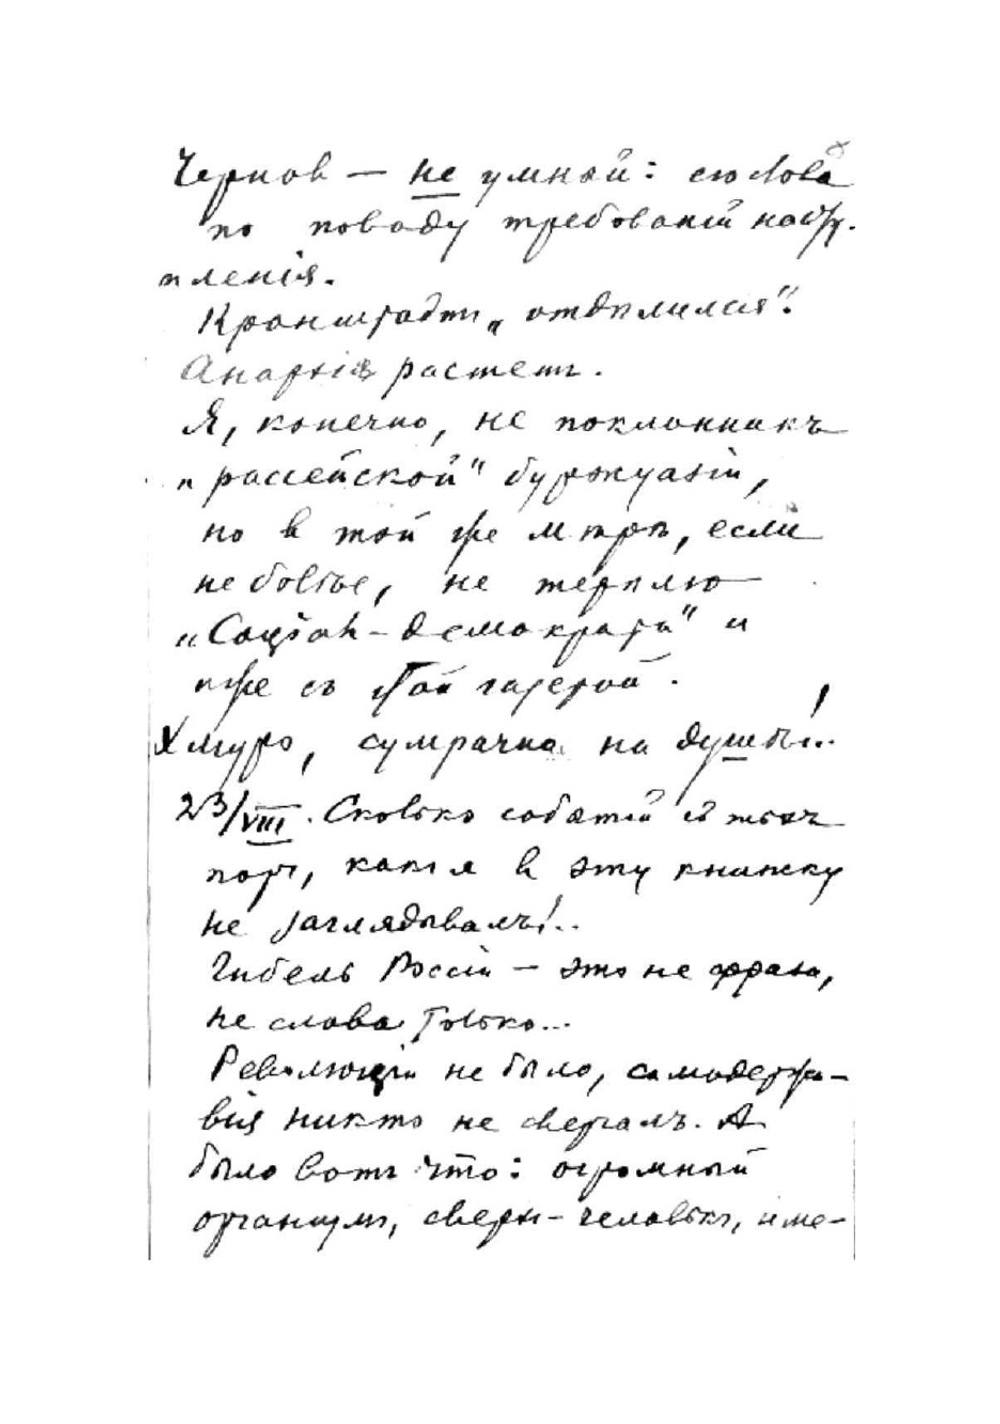 Чернов — не умный: его слова
по поводу требований насту-
пления.
Кронштадт „отделился".
Анархия растет.
Я, конечно, не поклонникъ
„рассейской" буржуазiи,
но в той же мѣрѣ, если
не болѣе, не терплю
„Социал-демократа" и
иже съ той газетой.
Хмуро, сумрачно на душѣ!..
23/VIII. Сколько событiй съ тѣхъ
поръ, какъ я в эту книжку
не заглядывалъ!..
Гибель Россiи — это не фраза,
не слова только...
Революцiи не было, самодержа-
вiя никто не свергалъ. А
было вотъ что: огромный
организмъ, сверх-человѣкъ, име-